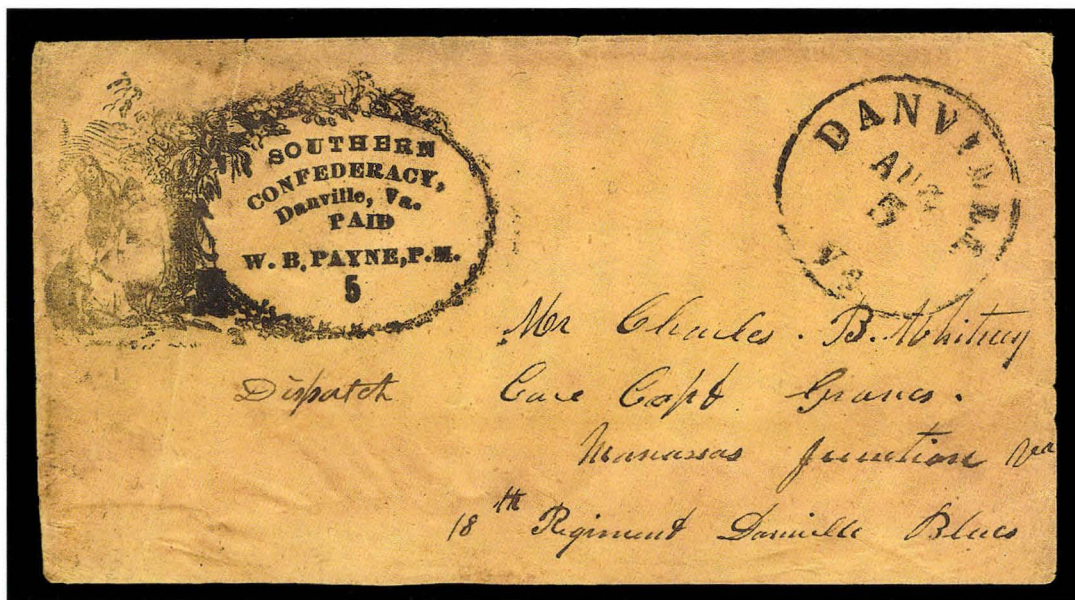 SOUTHERN
CONFEDERACY,
Danville, Va.
PAID
W. B. PAYNE, P.M.
5
DANVILLE
AUG
5
Va
Mr Charles . B. Whitney
Care Capt. Graves .
Manassas Junction Va
18th Regiment Danville Blues
Dispatch